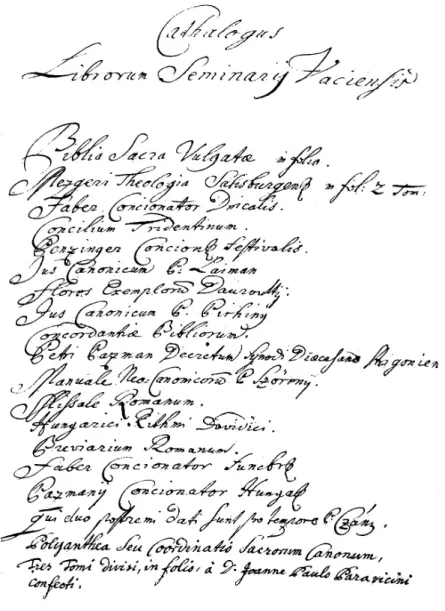 Cathalogus
Librorum Seminarij Vaciensis
Biblia Sacra Vulgatae in folio.
Mezgeri Theologia Salisburgens in fol: 2 Tom:
Faber Concionator Dnicalis.
Concilium Tridentinum.
Penzinger Concions festivalis.
Jus Canonicum P: Laiman
Flores Exemplorū Daurolty:
Jus Canonicum P. Pirhing
Concordantiae Bibliorum.
Petri Pazman Decretum Synodi Dioecesanae Strigonien
Manuale Neo-Canonicorū P
Missale Romanum.
Hungarici Rithmi Davidici.
Breviarium Romanum.
Faber Concionator Funebris
Pazmanij Concionator Hungar
qui duo postremi dati sunt pro tempore P:
Polyanthea Seu Coordinatio Sacrorum Canonum,
Tres Tomi divisi, in folio, à D: Joanne Paulo Paravicini
confecti.